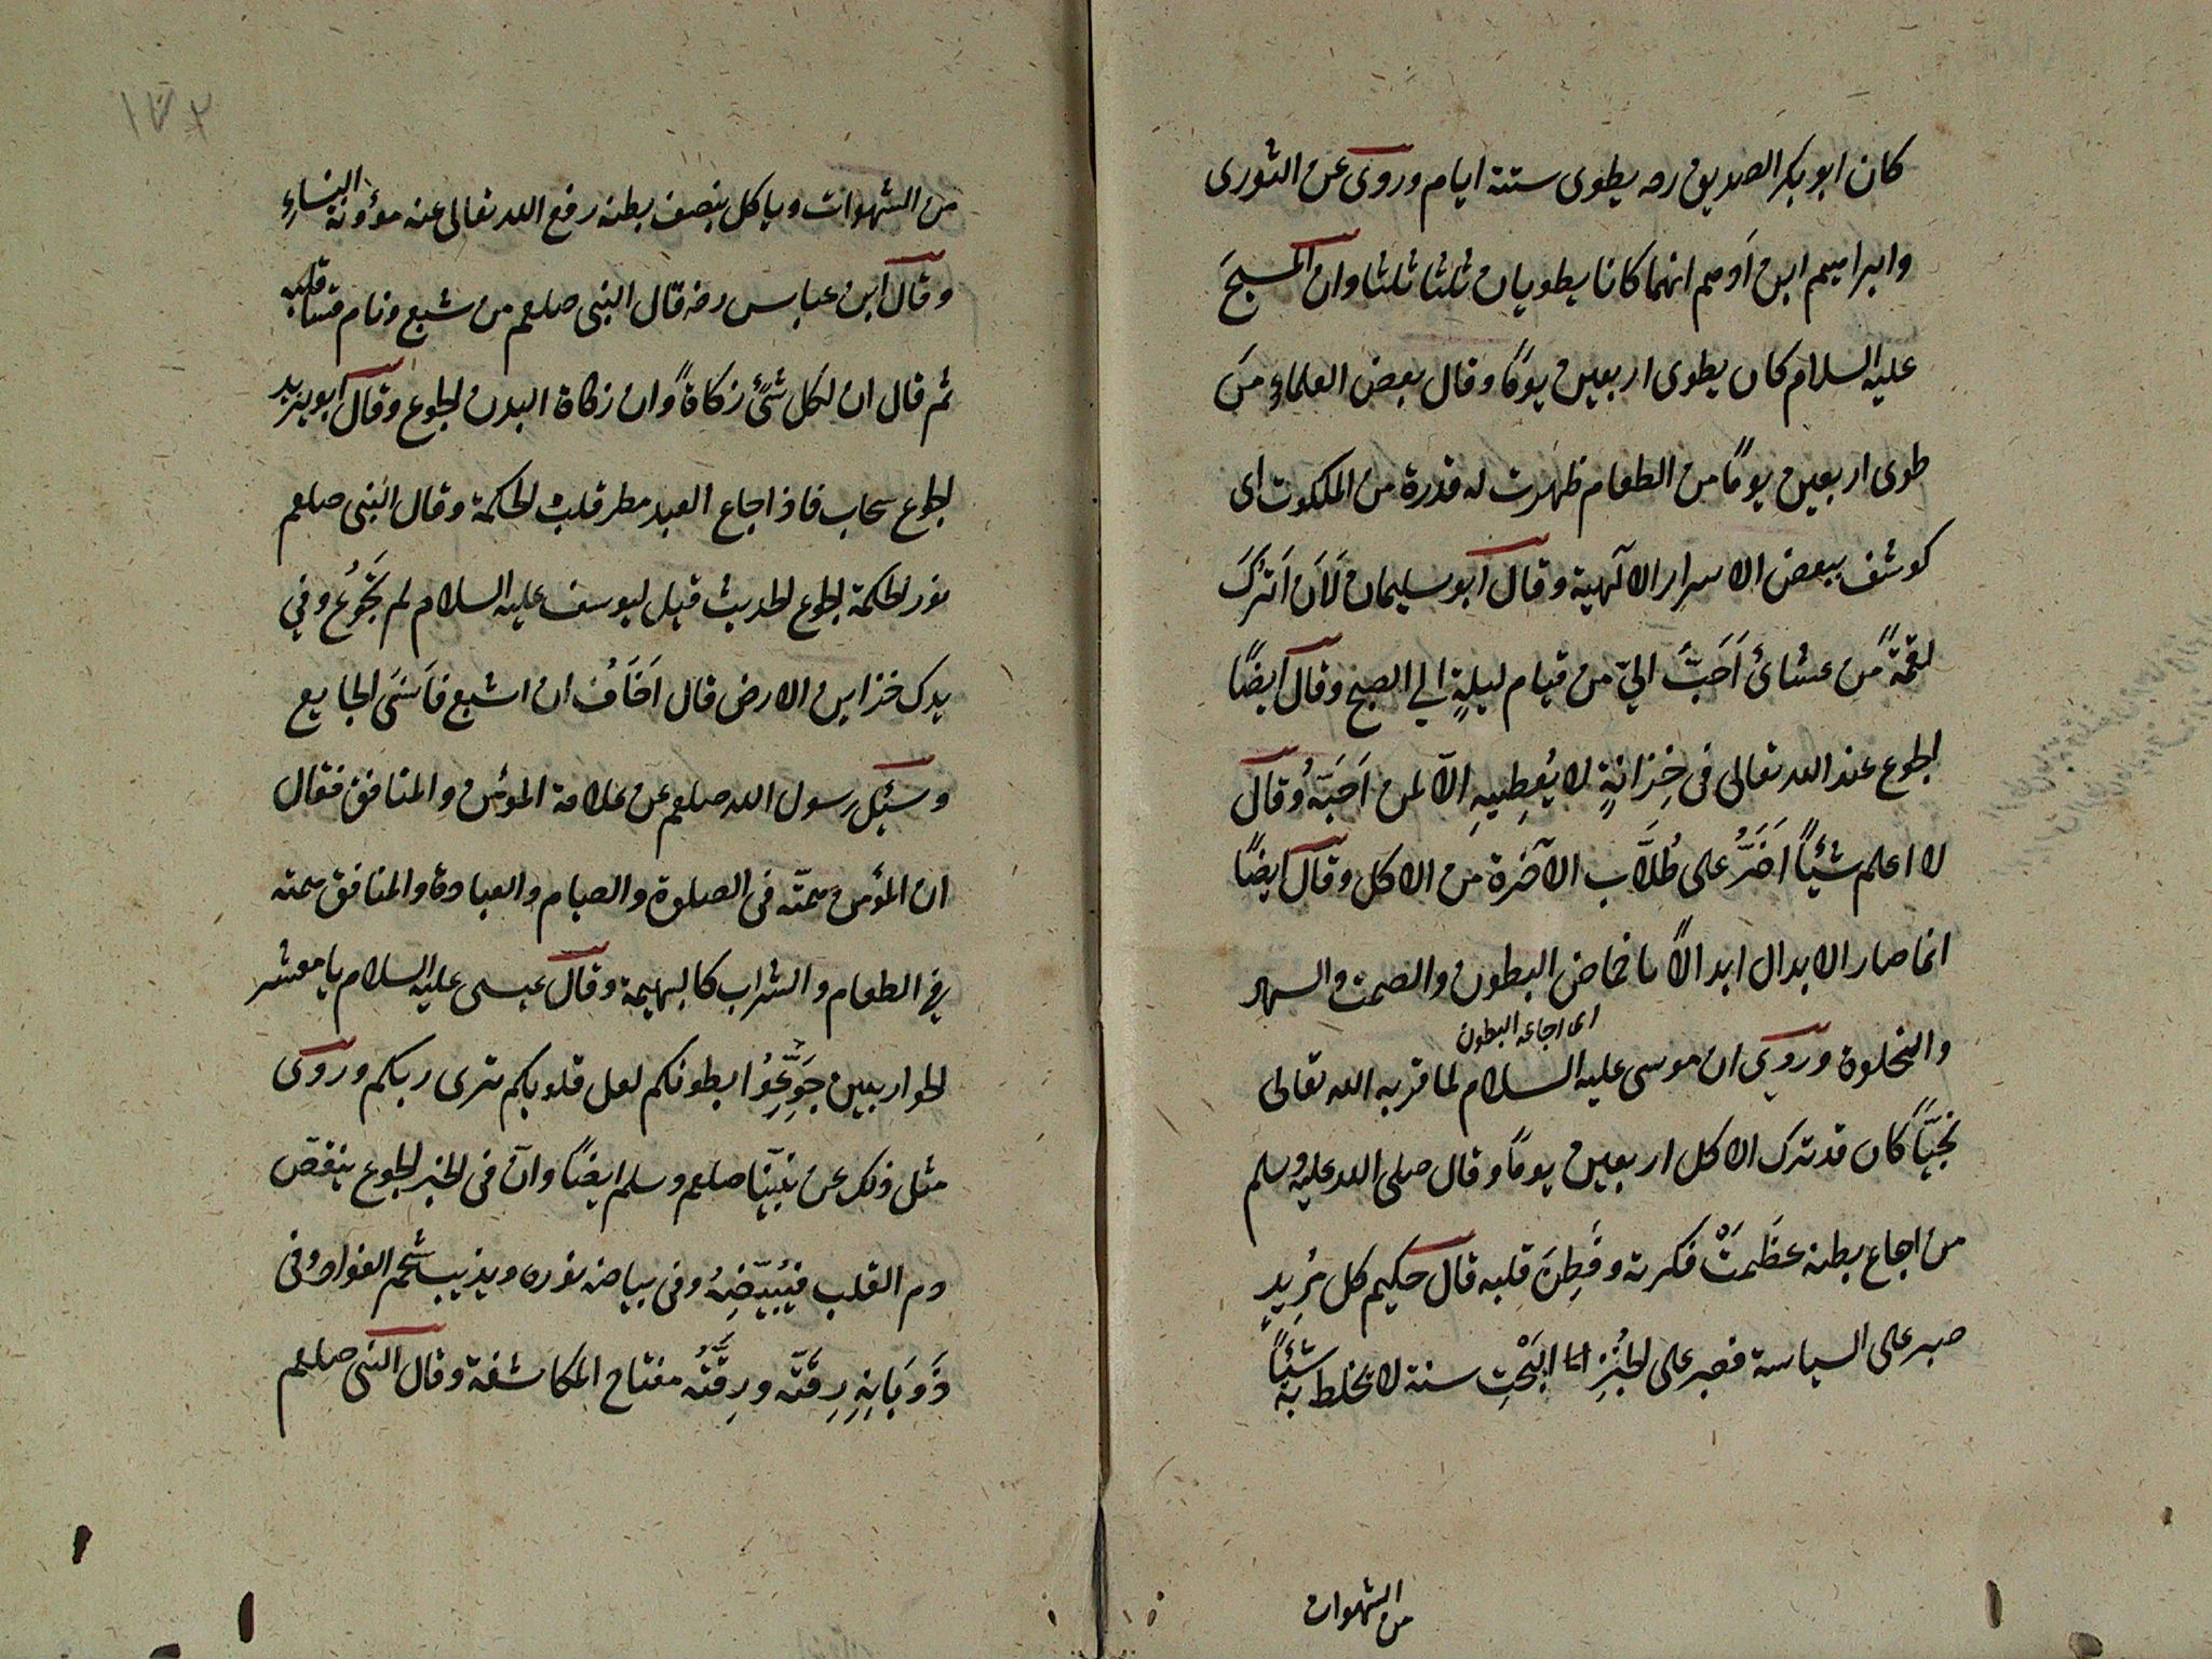 كان ابو بكر الصديق رضه يطوى ستة ايام وروى عن الثورى
وابراهيم ابن آدهم انهما كانا يطويان ثلثا ثلثا وان المسيحَ
عليه السلام كان يطوى اربعين يومًا وقال بعض العلماءِ مَن
طوى اربعين يومًا من الطعام ظهرت له قدرة من الملكوت اى
كوشف ببعض الاسرار الالهية وقال ابو سليمان لَاَن اَترُكَ
لقمةً من عشائى اَحَبُّ الىّ من قيام ليلةٍ الى الصبح وقال ايضًا
الجوع عند الله تعالى فى خِزانةٍ لا يُعطِيهِ الّا لمن اَحَبّهُ وقال
لا اعلم شيئًا اَضَرَّ على طُلَّاب الآخرة من الاكل وقال ايضًا
انما صار الابدال ابدالًا باخماض البطون والصمت والسهر
اى اجاعة البطون
والخلوة وروى ان موسى عليه السلام لما قربه الله تعالى
نجيّاً كان قد ترك الاكل اربعين يومًا وقال صلى الله عليه وسلم
من اجاع بطنه عظَمتْ فكرته وفَطِنَ قلبه قال حكيم كل مُرِيدٍ
صبر على السياسة فصبر على الخُبزِ البَحْتِ سنة لا يخلط به شيئاً
من الشهوات
١٧٢
من الشهوات وياكل بنصف بطنه رفع الله تعالى عنه مؤونة النساءِ
وقال ابن عباس رضه قال النبى صلعم من شبع ونام قسا قلبه
ثم قال ان لكل شئ زكاةً وان زكاة البدن الجوع وقال ابو يزيد
الجوع سحاب فاذا جاع العبد مطر قلبه الحكمة وقال النبى صلعم
نور الحكمة الجوع الحديث قيل ليوسف عليه السلام لم تَجُوعُ وفى
يدك خزاين الارض قال اَخَافُ ان اشبع فاَنسَى الجايع
وسئل رسول الله صلعم عن علامة المؤمن والمنافق فقال
ان المؤمن همّته فى الصلوة والصيام والعبادة والمنافق همته
فى الطعام والشراب كالبهيمة وقال عيسى عليه السلام يا معشر
الحواريين جَوِّعُوا بطونكم لعل قلوبكم ترى ربكم وروى
مثل ذلك عن نبيّنا صلعم وسلم ايضًا وانّ فى الخبر الجوع ينقص
دم القلب فيُبيّضِهُ وفى بياضه نوره ويذيب شحم الفواد وفى
ذَوَبَانِهِ رِقّته ورِقَّتُه مفتاح المكاشفة وقال النبى صلعم